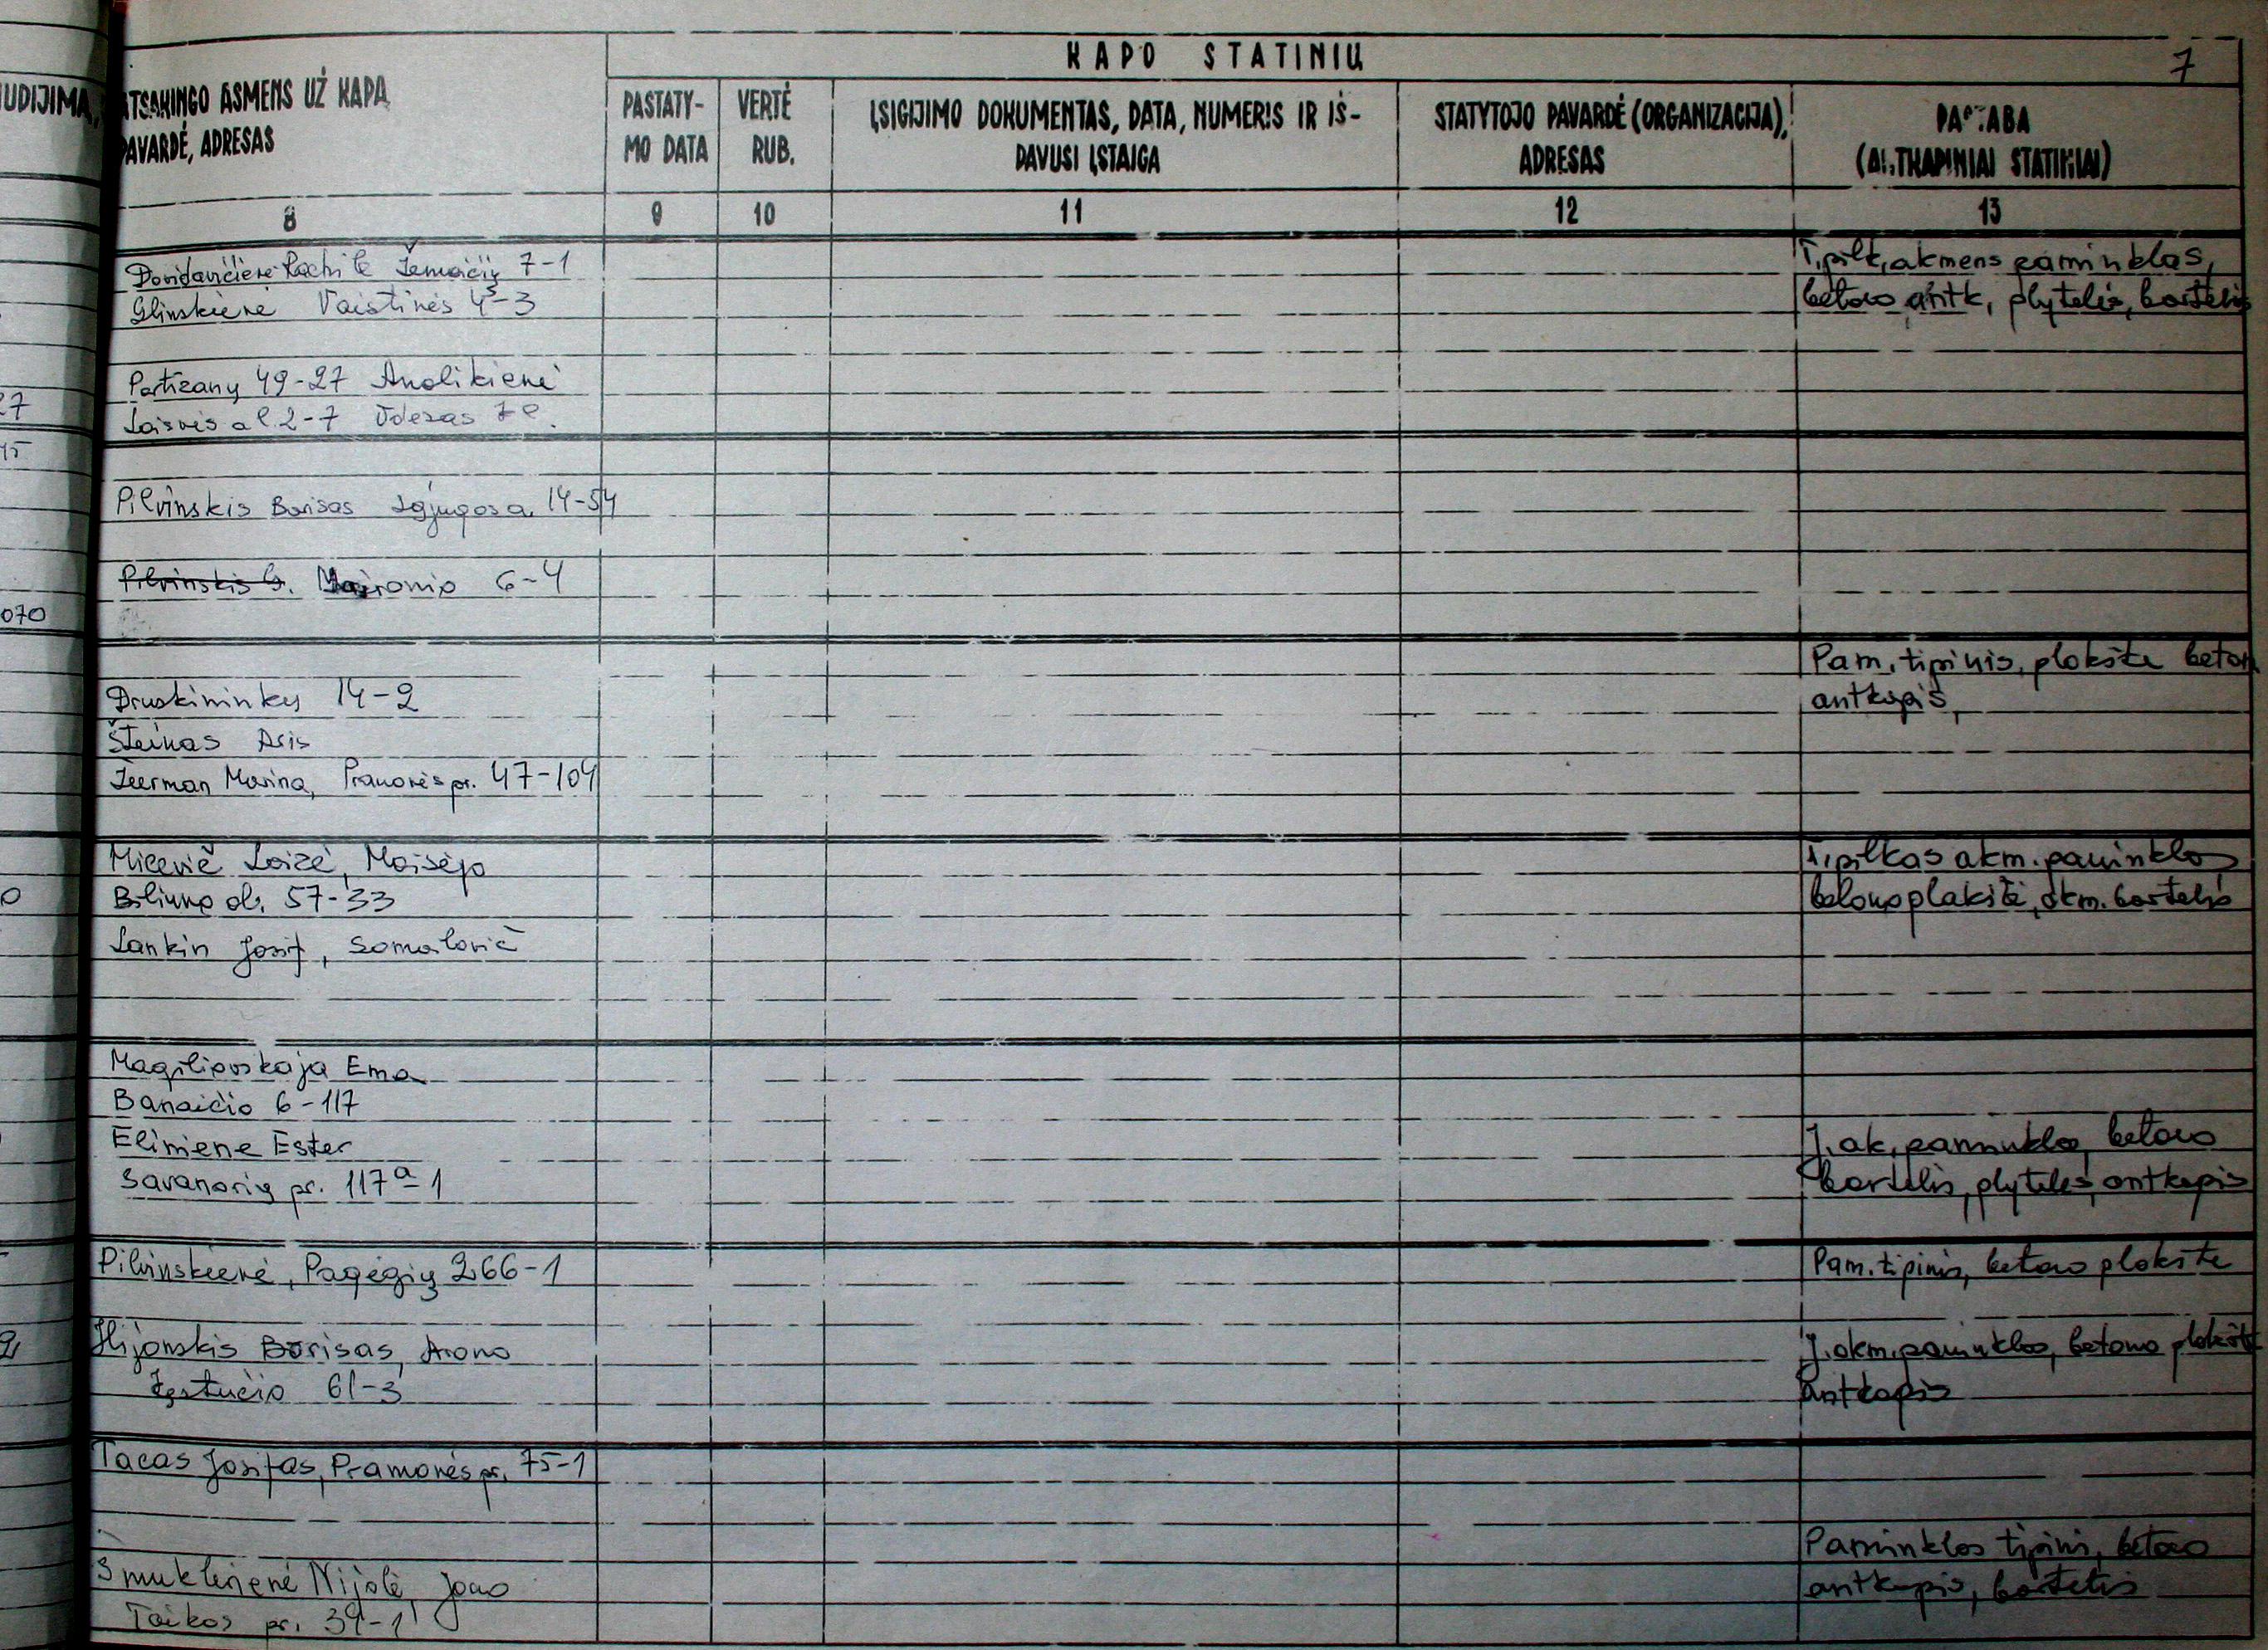 KAPO STATINIŲ
7
UDIJIMA,
ATSAKINGO ASMENS UŽ KAPĄ
PAVARDĖ, ADRESAS
PASTATY-
MO DATA
VERTĖ
RUB.
ĮSIGIJIMO DOKUMENTAS, DATA, NUMERIS IR IŠ-
DAVUSI ĮSTAIGA
STATYTOJO PAVARDĖ (ORGANIZACIJA),
ADRESAS
PASTABA
(ANTKAPINIAI STATINIAI)
8
9
10
11
12
13
Dovidavičienė 7-1
T. pilk. akmens paminklas,
Glinskienė Vaistinės 4-3
betono antk, plytelės, bortelis
Partizanų 49-27
27
Laisvės al. 2-7
15
Pilvinskis Borisas 14-54
Pilvinskis B. Maironio 6-4
070
Pam. tipinis, plokštė beton
Druskininkų 14-2
antkapis,
Šteinas Asis
Marina, Pramonės pr. 47-104
Micevič Moisėjo
T. pilkas akm. paminklas
Biliūno al. 57-33
betono plokštė, akm. bortelis
Lankin Josif,
Magiliovskaja Ema
Banaičio 6-117
Elimene Ester
J. ak. paminklas, betono
Savanorių pr. 117a-1
bortelis, plytelės, antkapis
Pilvinskienė, Pagėgių 266-1
Pam. tipinis, betono plokštė
Borisas, Arono
J. akm. paminklas, betono plokštė
Kęstučio 61-3
antkapis
Tacas Josifas, Pramonės pr. 75-1
Paminklas tipini, betono
Šmuklerienė Nijolė, Jono
antkapis, bortelis
Taikos pr. 39-1